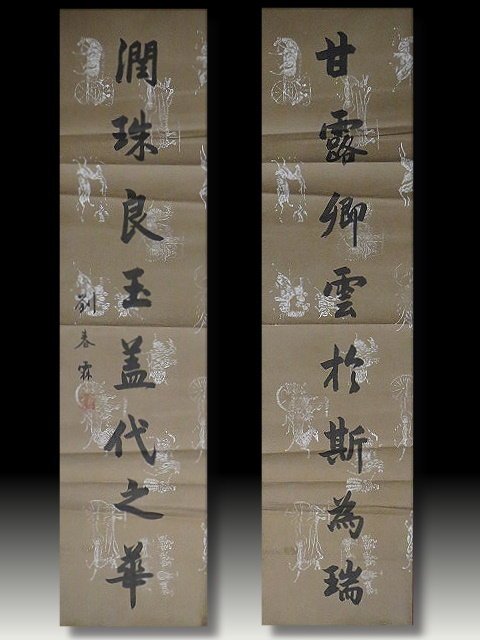 甘露卿雲於斯為瑞
潤珠良玉盖代之華
劉春霖